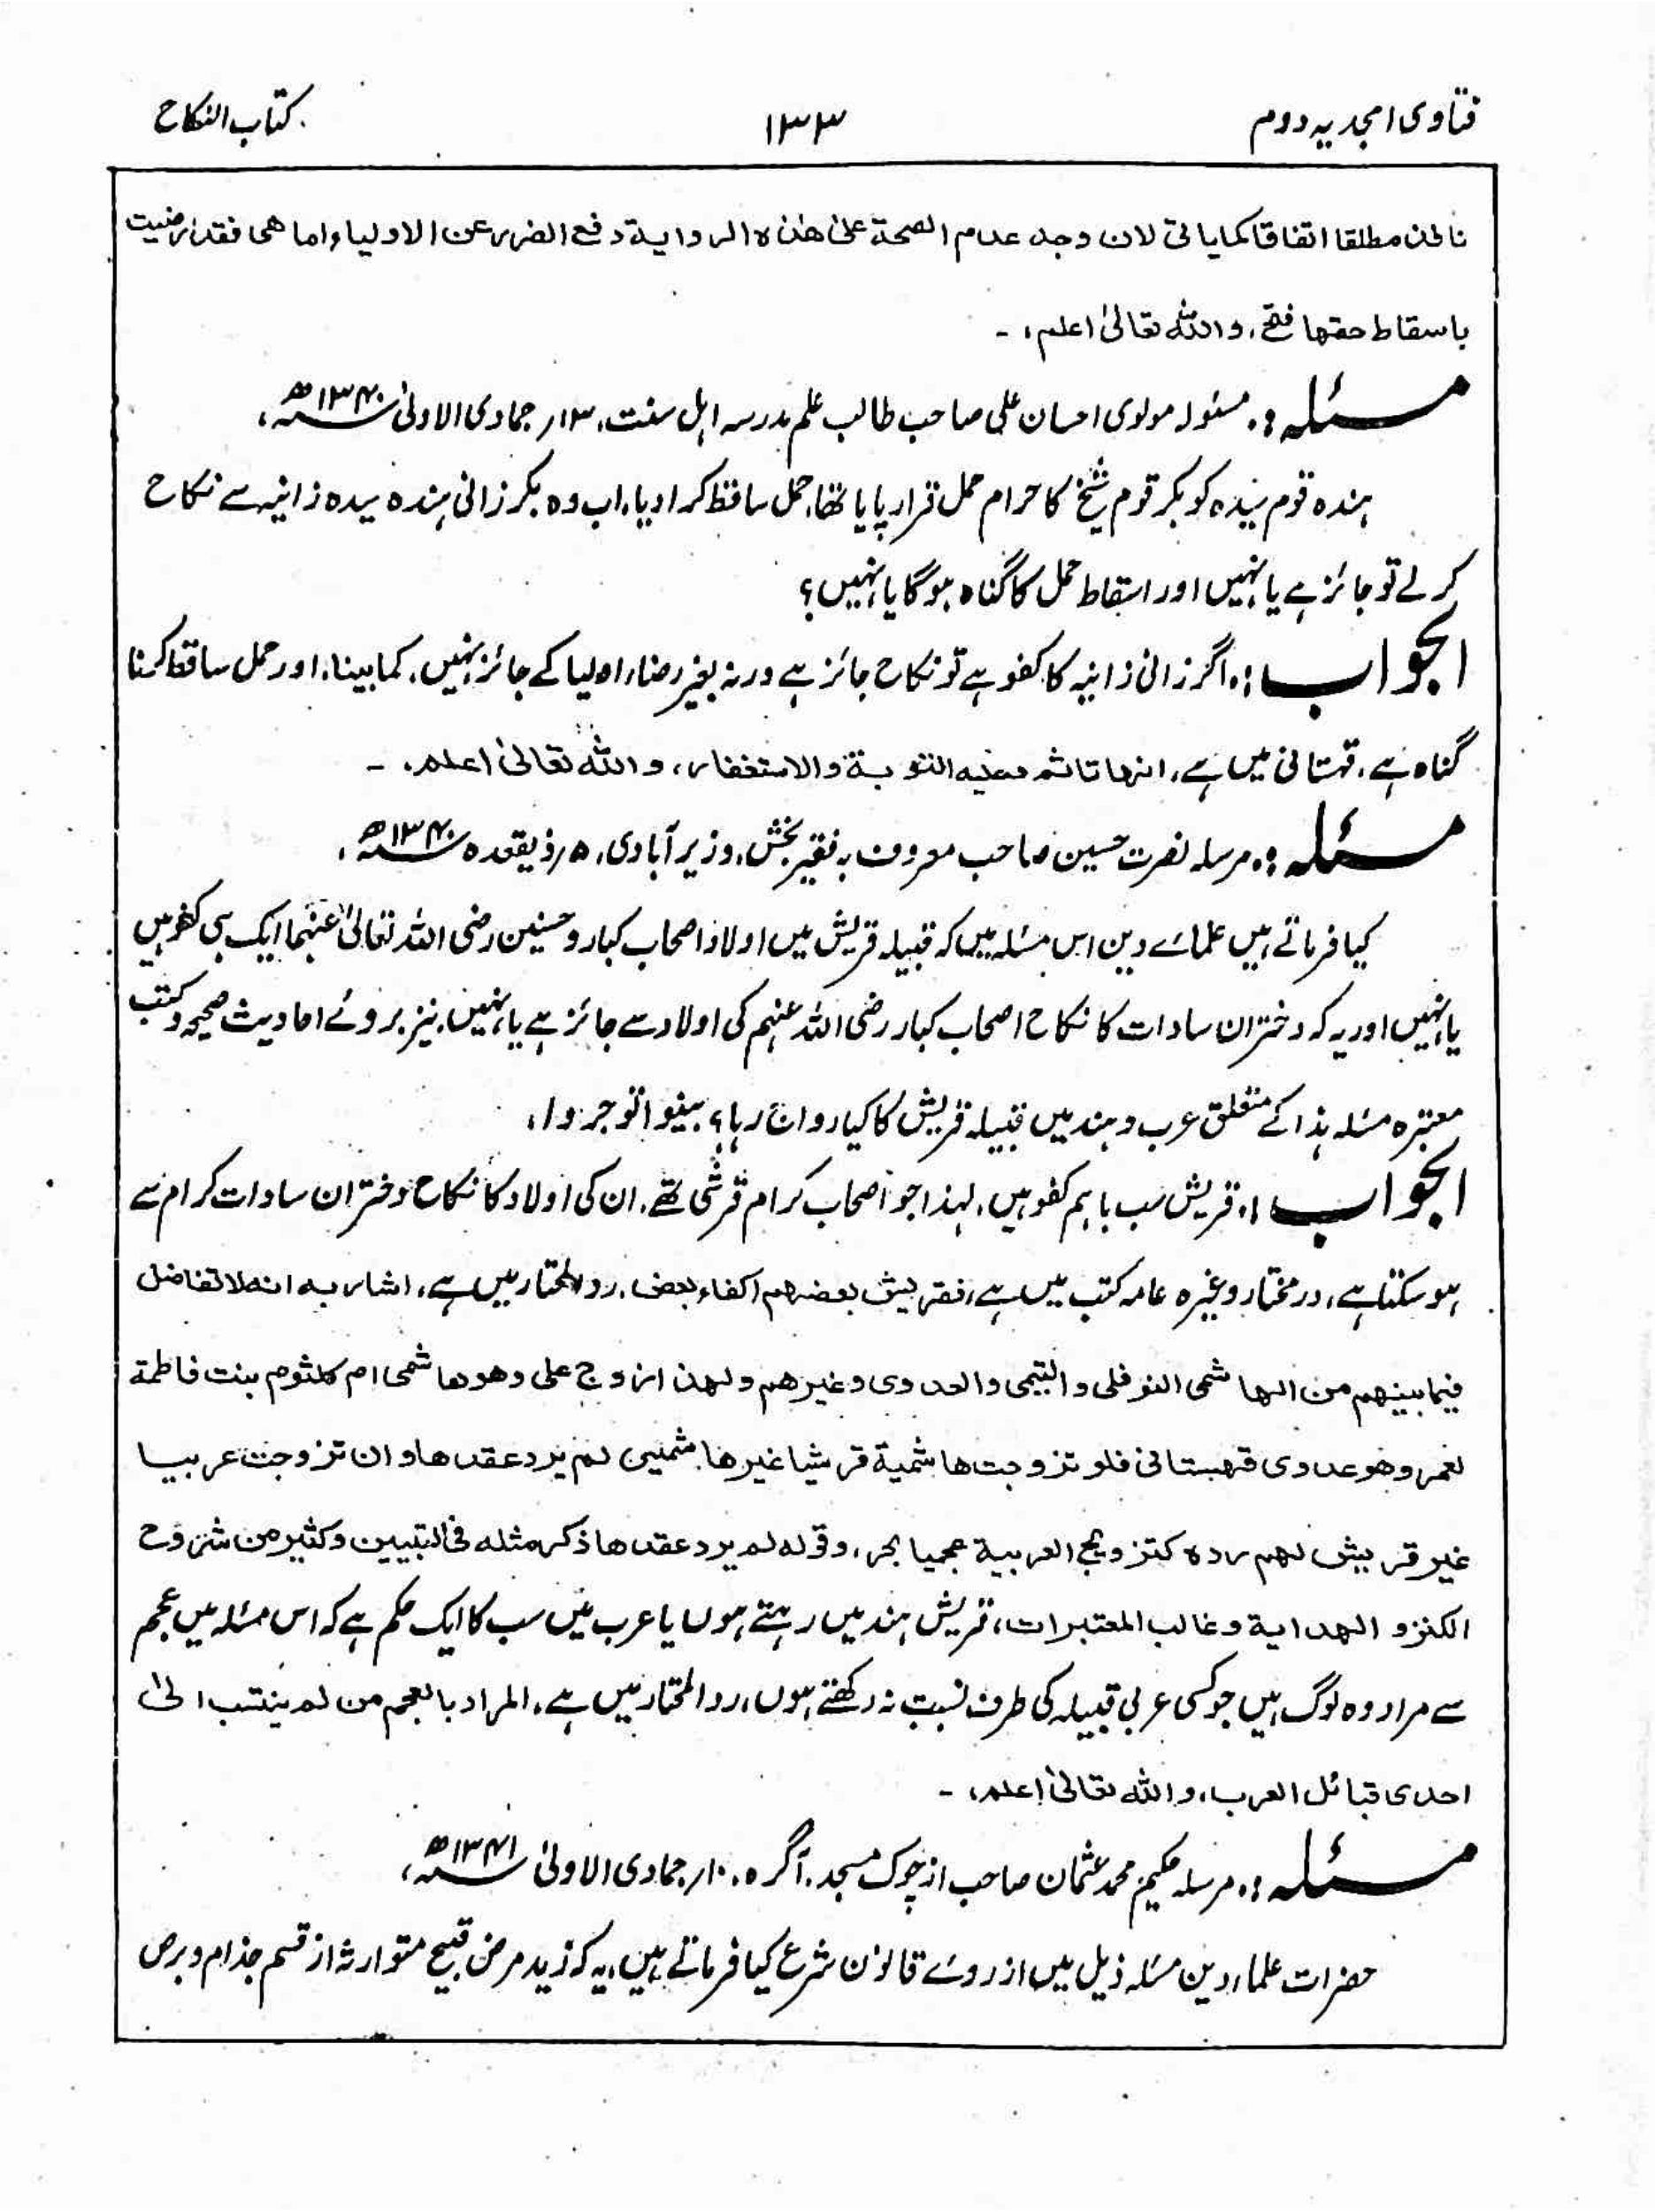 فتاوی امجدیہ دوم
۱۳۳
کتاب النکاح
نافذ مطلقا اتفاقا کما یاتی لان وجہ عدام الصحۃ علیٰ ھذہ الروایۃ دفع الضرر عن الاولیاء اما ھی فقد رضیت
باسقاط حقھا فتح، واللہ تعالیٰ اعلم، ۔
مسئلہ :۔ مسئولہ مولوی احسان علی صاحب طالب علم مدرسہ اہل سنت، ۱۳؍ جمادی الاولیٰ ۱۳۴۰ھ،
ہندہ قوم سیدہ کو بکر قوم شیخ کا حرام حمل قرار پایا تھا، حمل ساقط کرادیا، اب وہ بکر زانی ہندہ سیدہ زانیہ سے نکاح
کرلے تو جائز ہے یا نہیں اور اسقاط حمل کا گناہ ہوگا یا نہیں؟
الجواب :۔ اگر زانی زانیہ کا کفو ہے تو نکاح جائز ہے ورنہ بغیر رضاء اولیا کے جائز نہیں، کما بینا، اور حمل ساقط کرنا
گناہ ہے، قہستانی میں ہے، انھا تاثم وعلیہ التوبۃ والاستغفار، واللہ تعالیٰ اعلم، ۔
مسئلہ :۔ مرسلہ نصرت حسین صاحب معروف بہ فقیر بخش، وزیرآبادی، ۵؍ ذیقعدہ ۱۳۴۰ھ،
کیا فرماتے ہیں علمائے دین اس مسئلہ میں کہ قبیلہ قریش میں اولاد اصحاب کبار و حسنین رضی اللہ تعالیٰ عنہما ایک ہی کفو ہیں
یا نہیں اور یہ کہ دختران سادات کا نکاح اصحاب کبار رضی اللہ عنہم کی اولاد سے جائز ہے یا نہیں، نیز بروئے احادیث صحیحہ و کتب
معتبرہ مسئلہ ہذا کے متعلق عرب و ہند میں قبیلہ قریش کا کیا رواج رہا؟ بینوا توجروا،
الجواب :۔ قریش سب باہم کفو ہیں، لہذا جو اصحاب کرام قرشی تھے، ان کی اولاد کا نکاح دختران سادات کرام سے
ہوسکتا ہے، درمختار وغیرہ عامہ کتب میں ہے، فقریش بعضھم اکفاء بعض، ردالمختار میں ہے، اشار بہ انہ لا تفاضل
فیما بینھم من الھاشمی النوفلی والتیمی والعدوی وغیرھم ولھذا زوج علی وھو ھاشمی ام کلثوم بنت فاطمۃ
لعمر وھو عدوی قھستانی فلو تزوجت ھاشمیۃ قرشیا غیر ھاشمیین لم یرد عقدھا وان تزوجت عربیا
غیر قریش لھم ردہ کتزویج العربیۃ عجمیا بحر، وقولہ لم یرد عقدھا ذکر مثلہ فی التبیین وکثیر من شروح
الکنز و الھدایۃ وغالب المعتبرات، قریش ہند میں رہتے ہوں یا عرب میں سب کا ایک حکم ہے کہ اس مسئلہ میں عجم
سے مراد وہ لوگ ہیں جو کسی عربی قبیلہ کی طرف نسبت نہ رکھتے ہوں، ردالمختار میں ہے، المراد بالعجم من لم ینتسب الیٰ
احدی قبائل العرب، واللہ تعالیٰ اعلم، ۔
مسئلہ :۔ مرسلہ حکیم محمد عثمان صاحب از چوک مسجد، آگرہ، ۱۰؍ جمادی الاولیٰ ۱۳۴۱ھ،
حضرات علماء دین مسئلہ ذیل میں ازروئے قانون شرع کیا فرماتے ہیں، یہ کہ زید مرض قبیح متوارثہ از قسم جذام و برص